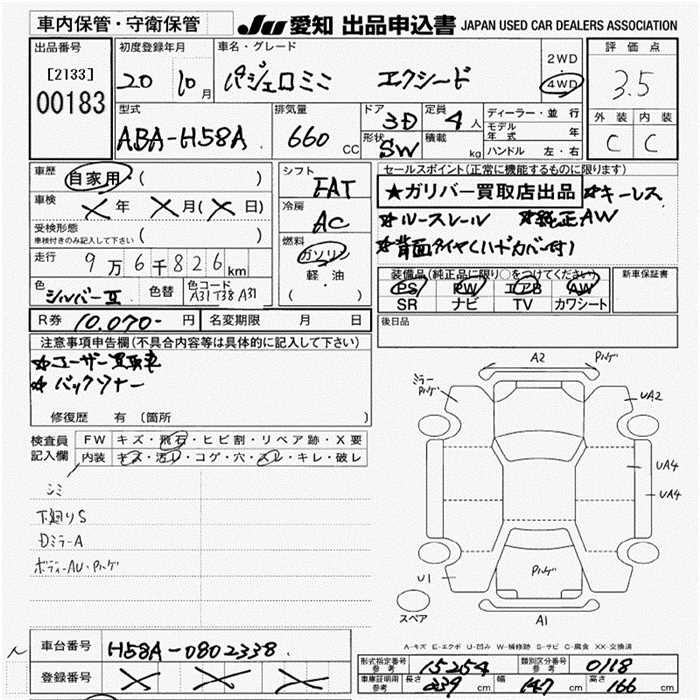 車内保管・守衛保管 JU 愛知 出品申込書 JAPAN USED CAR DEALERS ASSOCIATION
出品番号 初度登録年月 車名・グレード 2WD 評価点
[2133] 20 10月 パジェロミニ エクシード 4WD 3.5
00183 型式 排気量 ドア 3D 定員 4人 ディーラー・並行 外装 内装
ABA-H58A 660 CC 形状 SW 積載 kg モデル年式 年 C C
ハンドル 左・右
車歴 自家用・( ) シフト FAT セールスポイント(正常に機能するものに限ります)
★ガリバー買取店出品 ☆キーレス
車検 メ年 メ月(メ日) 冷房 AC ☆ルーフレール ☆純正AW
受検形態 車検付きのみ記入して下さい ( ) 燃料 ガソリン ☆背面タイヤ(ハードカバー付)
走行 9万6千826km 軽・油 装備品(純正品に限り○をつけてください) 新車保証書
色 シルバーII 色替 色コード A31T38A31 ( ) PS PW エアB AW
SR ナビ TV カワシート
R券 10,070-円 名変期限 月 日 後日品
注意事項申告欄(不具合内容等は具体的に記入して下さい)
☆ユーザー買取車
☆バックソナー
修復歴 有 (箇所
検査員記入欄 FW キズ・飛石・ヒビ割・リペア跡・X要
内装 キズ・汚レ・コゲ・穴・スレ・キレ・破レ
シミ
下廻りS
DミラーA
ボディーAU・Pハゲ
A2 Pハゲ
ミラーPハゲ UA2
UA4
UA4
Pハゲ
U1
スペア A1
A-キズ E-エクボ U-凹み W-補修跡 S-サビ C-腐食 XX-交換済
車台番号 H58A-0802338
登録番号
型式指定番号 参考 15254 類別区分番号 参考 0118
車庫証明用 参考 長さ 339 cm 幅 147 cm 高さ 166 cm